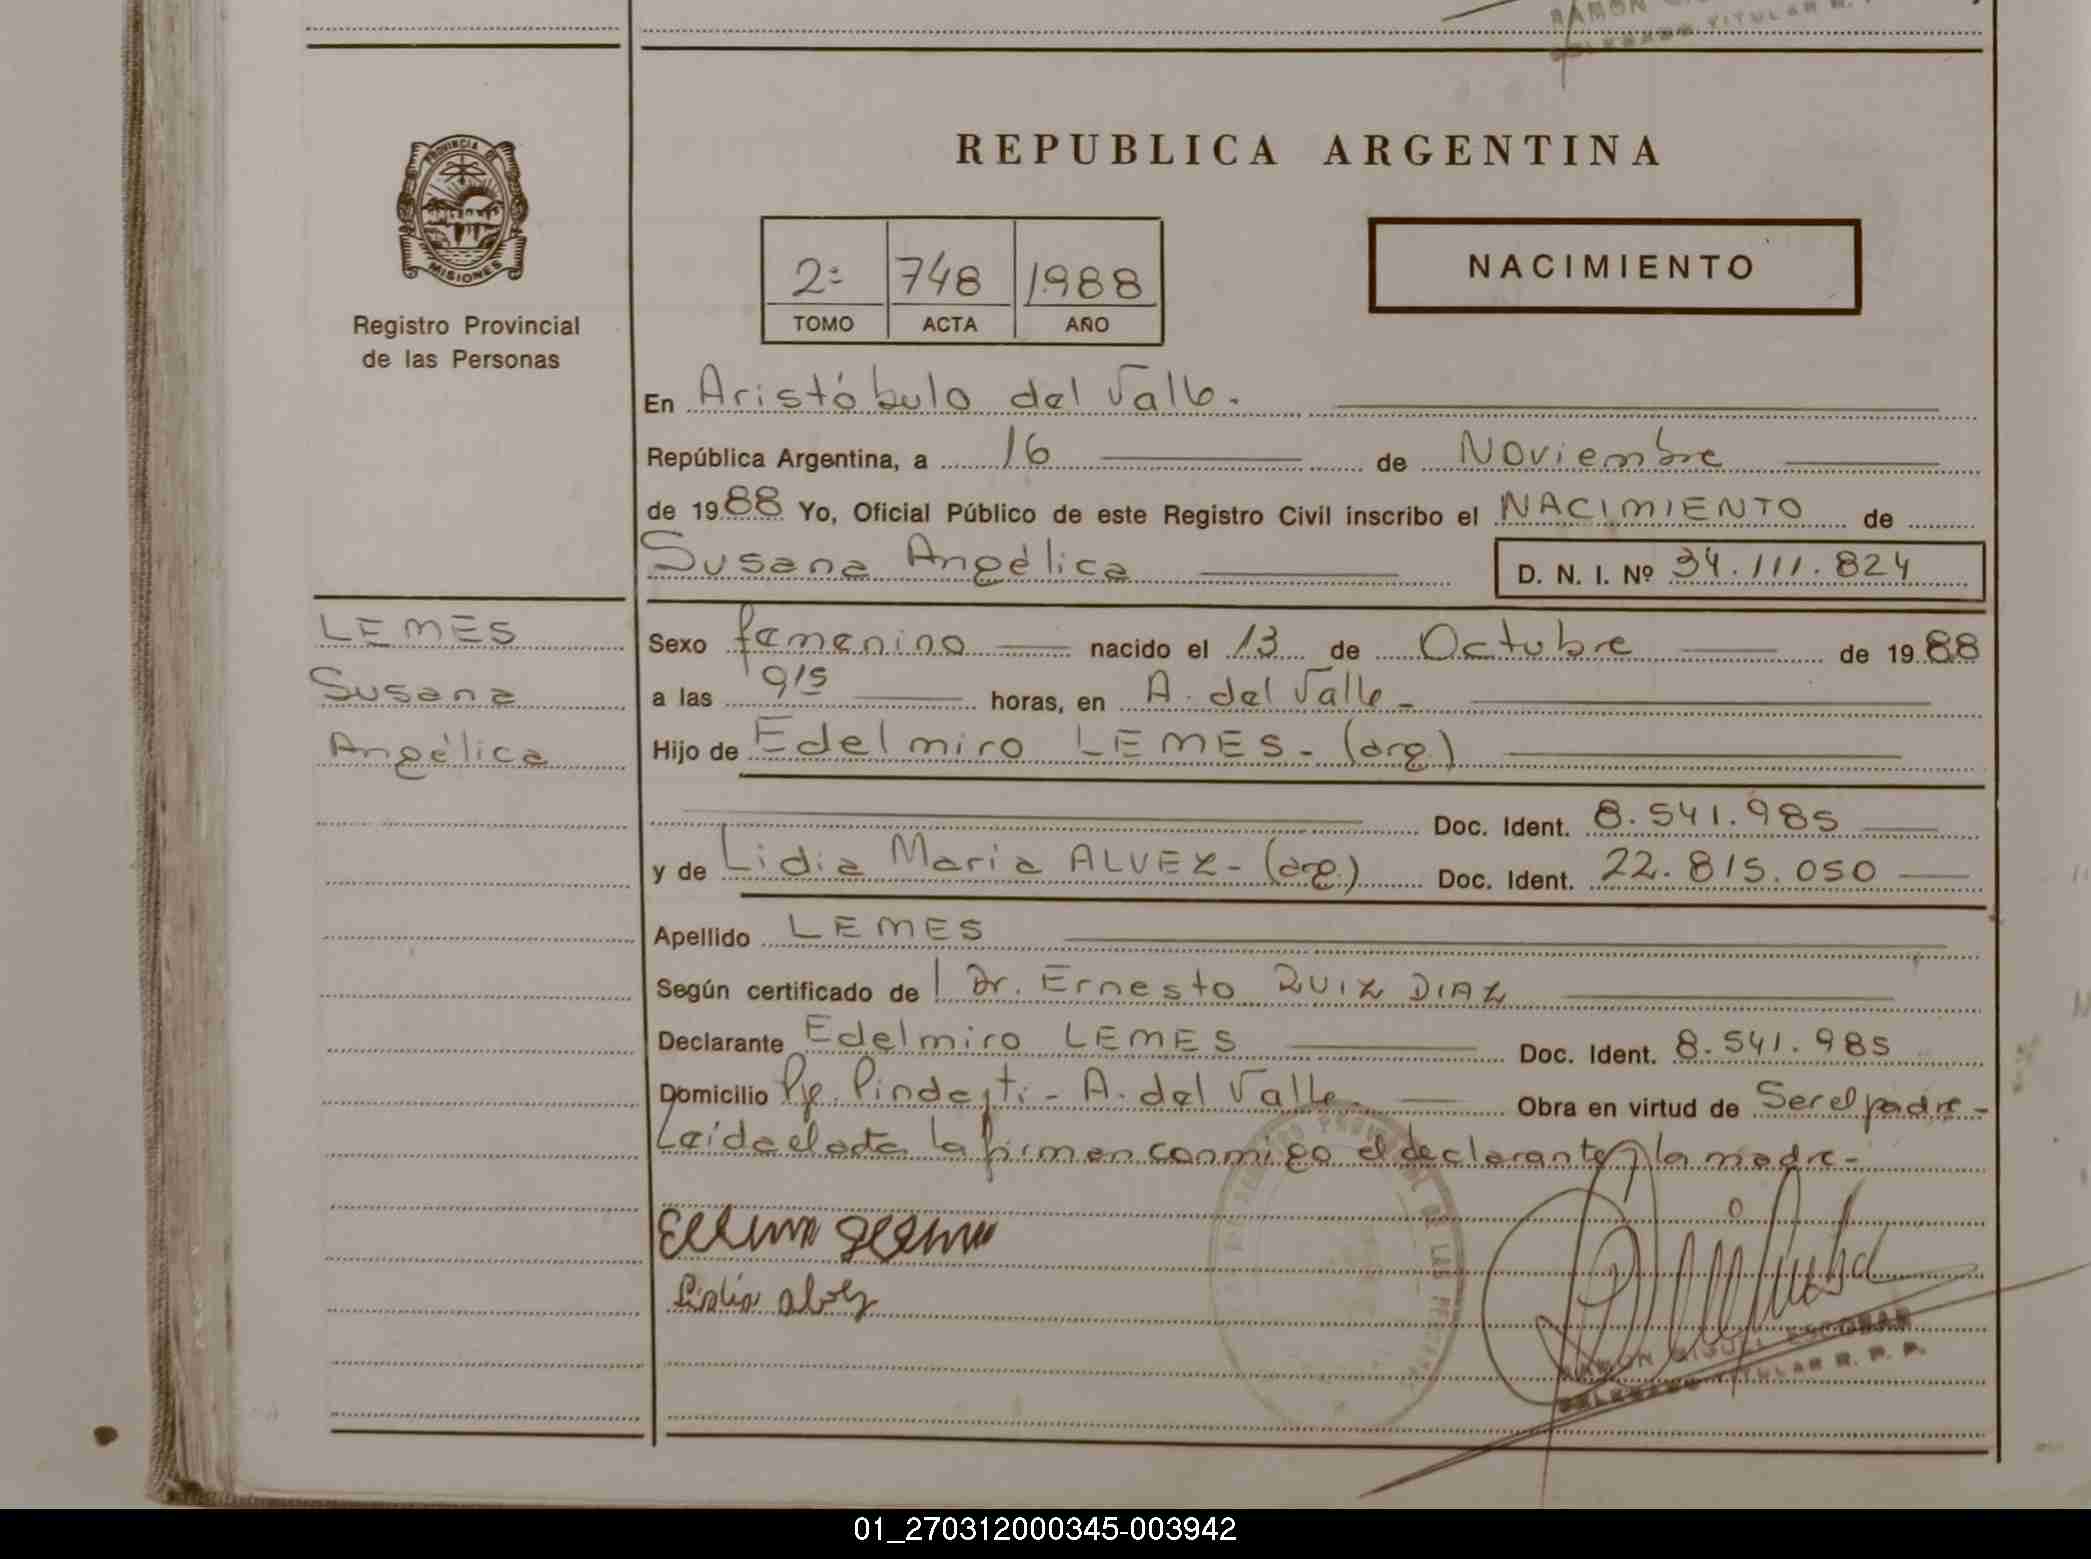 RAMON
DELEGADO TITULAR R.
PROVINCIA DE
MISIONES
Registro Provincial
de las Personas
REPUBLICA ARGENTINA
2ª 748 1988
TOMO ACTA AÑO
NACIMIENTO
En Aristóbulo del Valle.
República Argentina, a 16 de Noviembre
de 1988 Yo, Oficial Público de este Registro Civil inscribo el NACIMIENTO de
Susana Angélica D. N. I. Nº 34.111.824
LEMES
Susana
Angélica
Sexo femenino nacido el 13 de Octubre de 1988
a las 9 15 horas, en A. del Valle -
Hijo de Edelmiro LEMES - (arg.)
Doc. Ident. 8.541.985
y de Lidia Maria ALVEZ - (arg.) Doc. Ident. 22.815.050
Apellido LEMES
Según certificado de Dr. Ernesto RUIZ DIAZ
Declarante Edelmiro LEMES Doc. Ident. 8.541.985
Domicilio Pje. Pindayti - A. del Valle Obra en virtud de Ser el padre -
Leida el acta la firman conmigo el declarante y la madre -
REGISTRO PROVINCIAL DE LAS PERSONAS
Lidia alvez
RAMON MIGUEL ESCOBAR
DELEGADO TITULAR R. P. P.
01_270312000345-003942